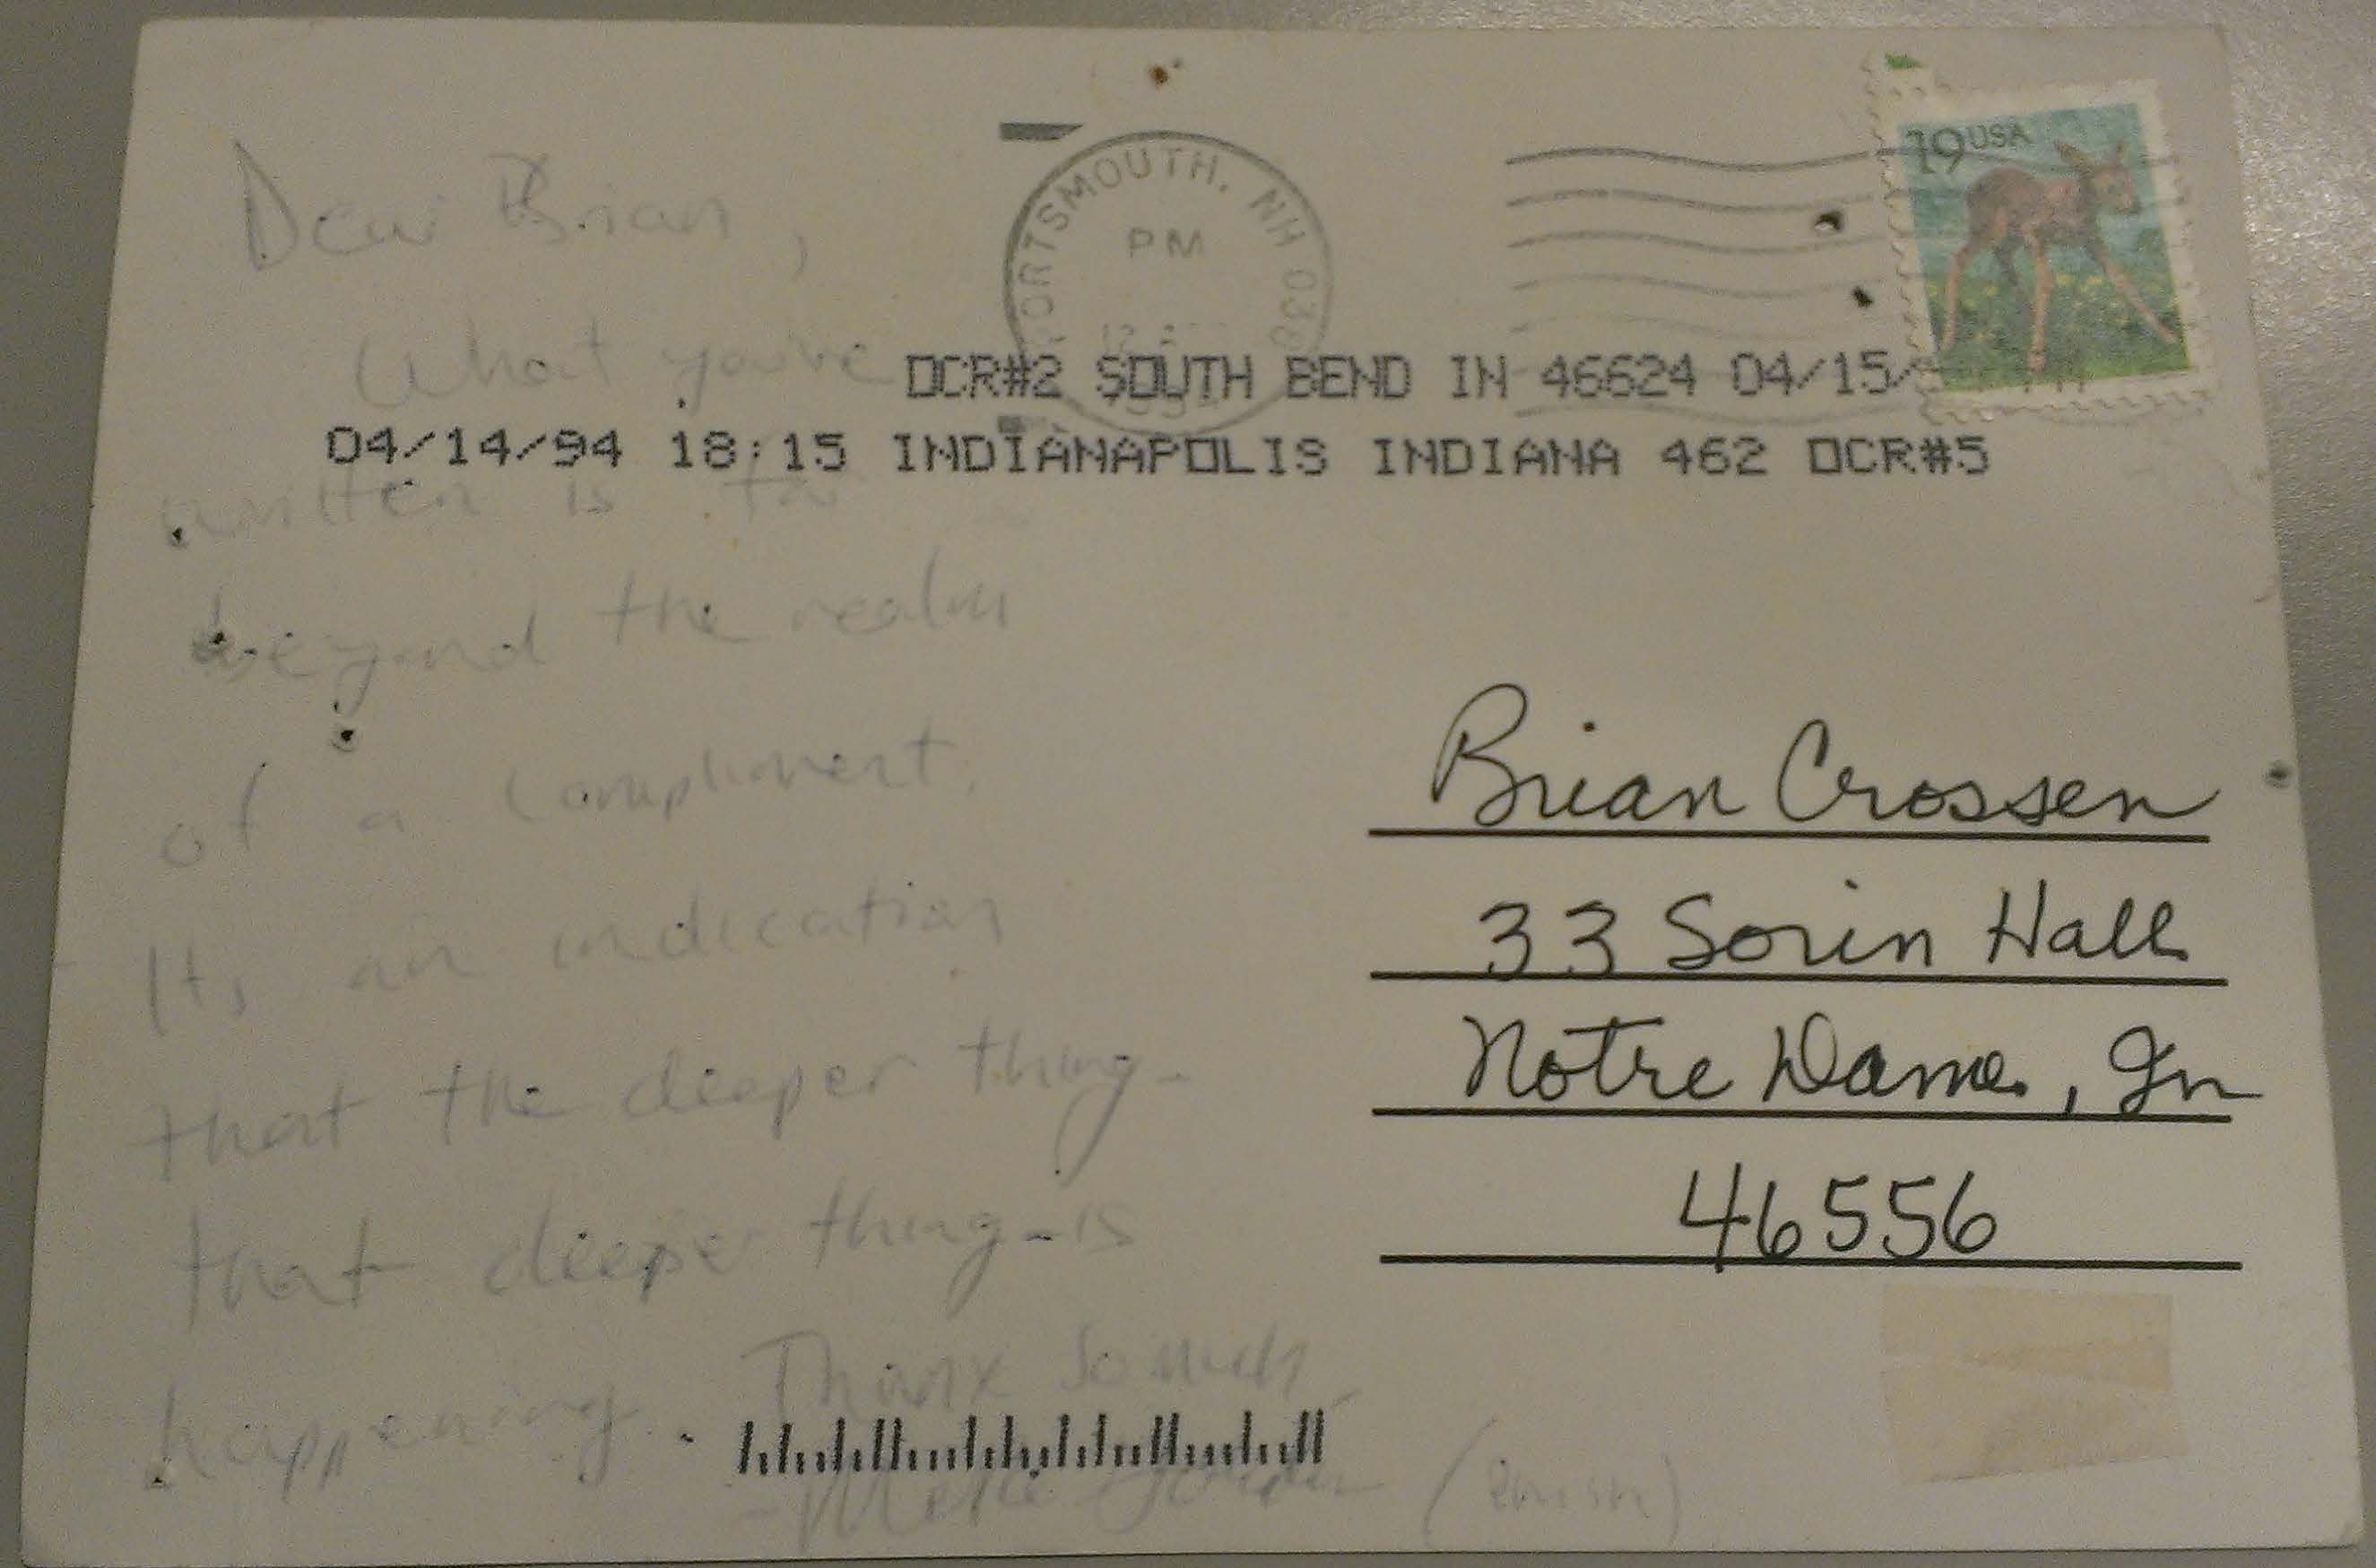 Dear Brian,
What you've
written is far
beyond the realm
of a compliment.
Its an indication
that the deeper thing-
that deeper thing-is
happening. Thanx so much
-Mike Gordon (Phish)
PORTSMOUTH, NH 038
PM
19 USA
OCR#2 SOUTH BEND IN 46624 04/15/
04/14/94 18:15 INDIANAPOLIS INDIANA 462 OCR#5
Brian Crossen
33 Sorin Hall
Notre Dame, In
46556